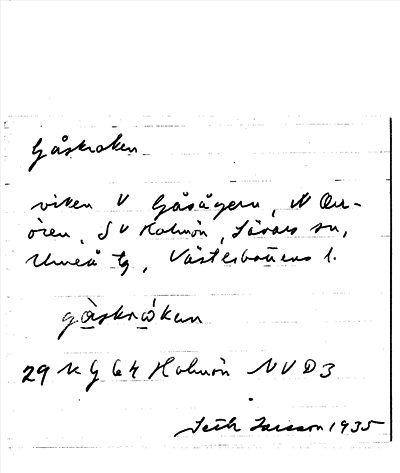 Gåskroken
viken V Gåsågern, N Orr-
ören, SV Holmön, Sävars sn,
Umeå tg, Västerbottens l.
gåskrωkan
29 K g 64 Holmön NV D3
Seth Larsson 1935